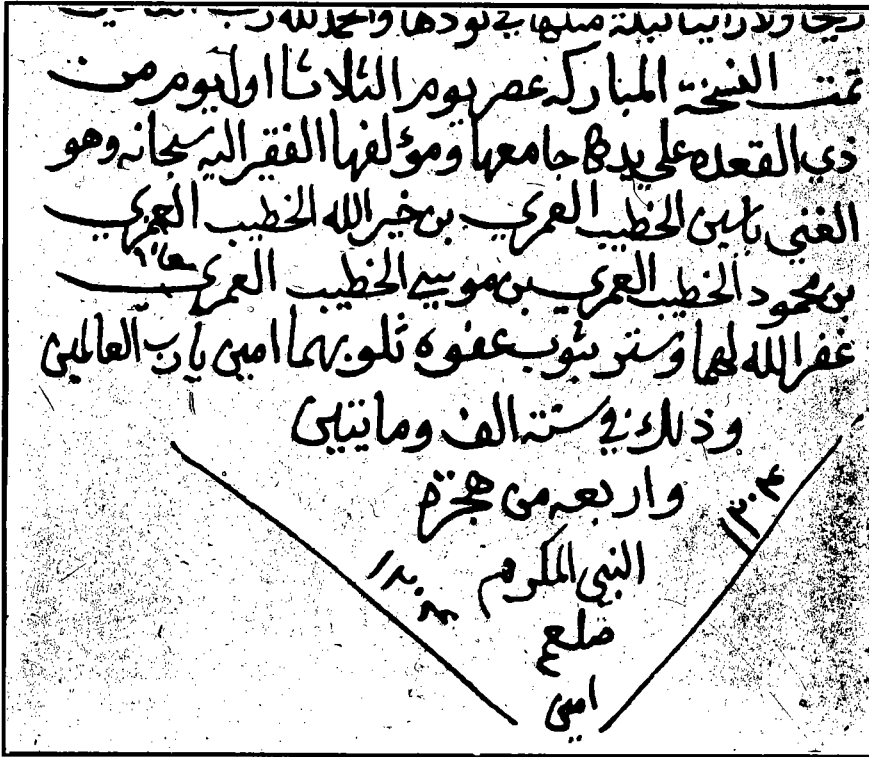 ريحا ولا راينا ليلة مثلها في نودها والحمد لله رب
تمت النسخة المباركه عصر يوم الثلاثا اول يوم من
ذي القعده علي يد جامعها ومؤلفها الفقير اليه سبحانه وهو
الغني ياسين الخطيب العمري بن خير الله الخطيب العمري
بن محمود الخطيب العمري بن موسي الخطيب العمري
غفر الله لهما وستر بثوب عفوه ثلوبهما امين يا رب العالمين
وذلك في سنة الف وماتيين
واربعه من هجرة
النبي المكرم
صلعم
امين
١٢٠٤
١٢٠٤